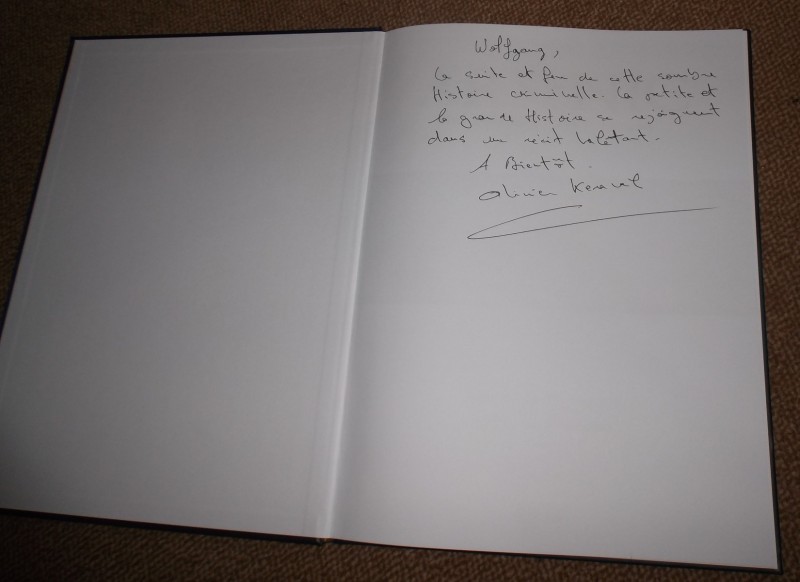 Wolfgang,
La suite et fin de cette sombre
Histoire criminelle. La petite et
la grande Histoire se rejoignent
dans un récit haletant.
A Bientôt.
Olivier Keraval